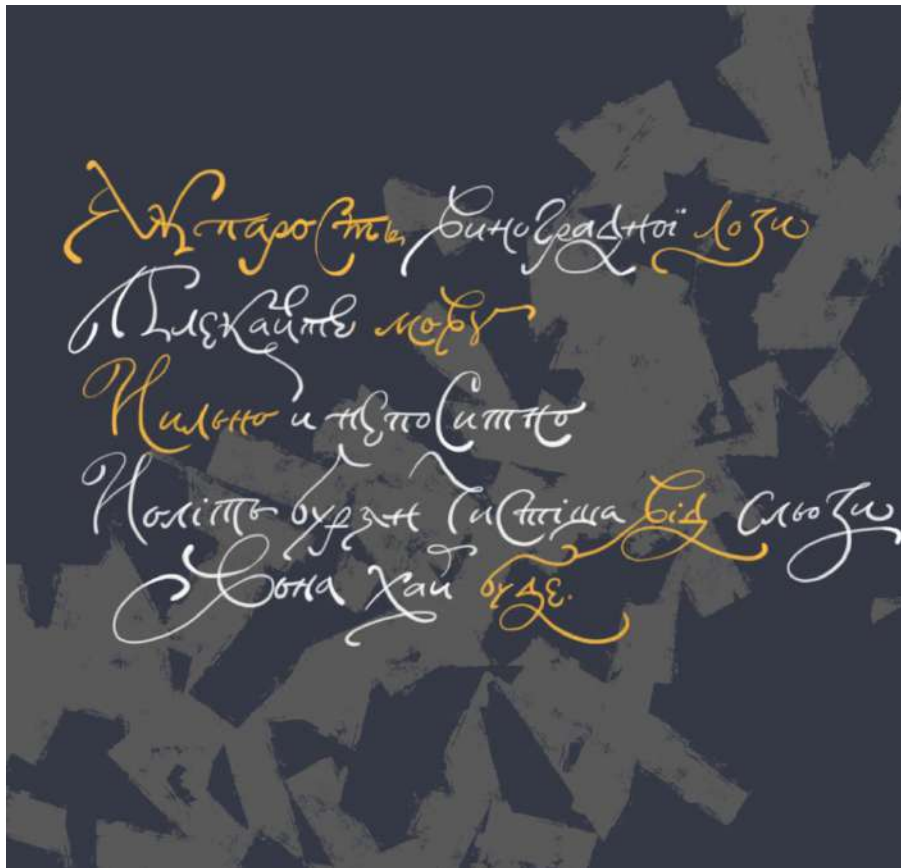 Як парость виноградної лози
Плекайте мову
Пильно й непоситно
Політь бур'ян Чистіша від сльози
Вона хай буде.